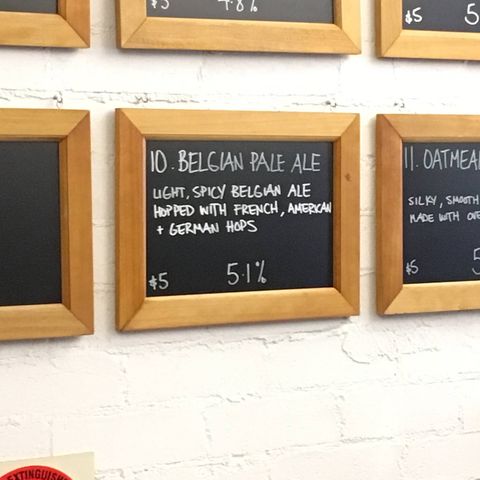 $5
4.8%
$5
5
10. BELGIAN PALE ALE
LIGHT, SPICY BELGIAN ALE
HOPPED WITH FRENCH, AMERICAN
+ GERMAN HOPS
$5 5.1%
11. OATMEA
SILKY, SMOOTH
MADE WITH OVE
$5 5
EXTINGUISH